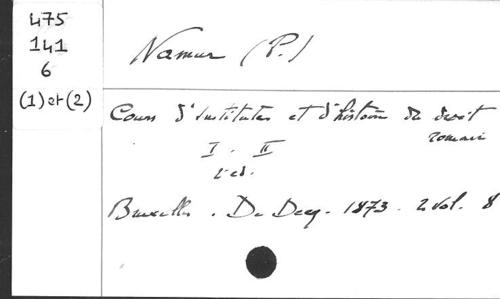 475
141
6
(1) et (2)
Namur (P.)
Cours d'Institutes et d'histoire du droit
romain
I. II
2e ed.
Bruxelles. De Decq. 1873. 2 vol. 8